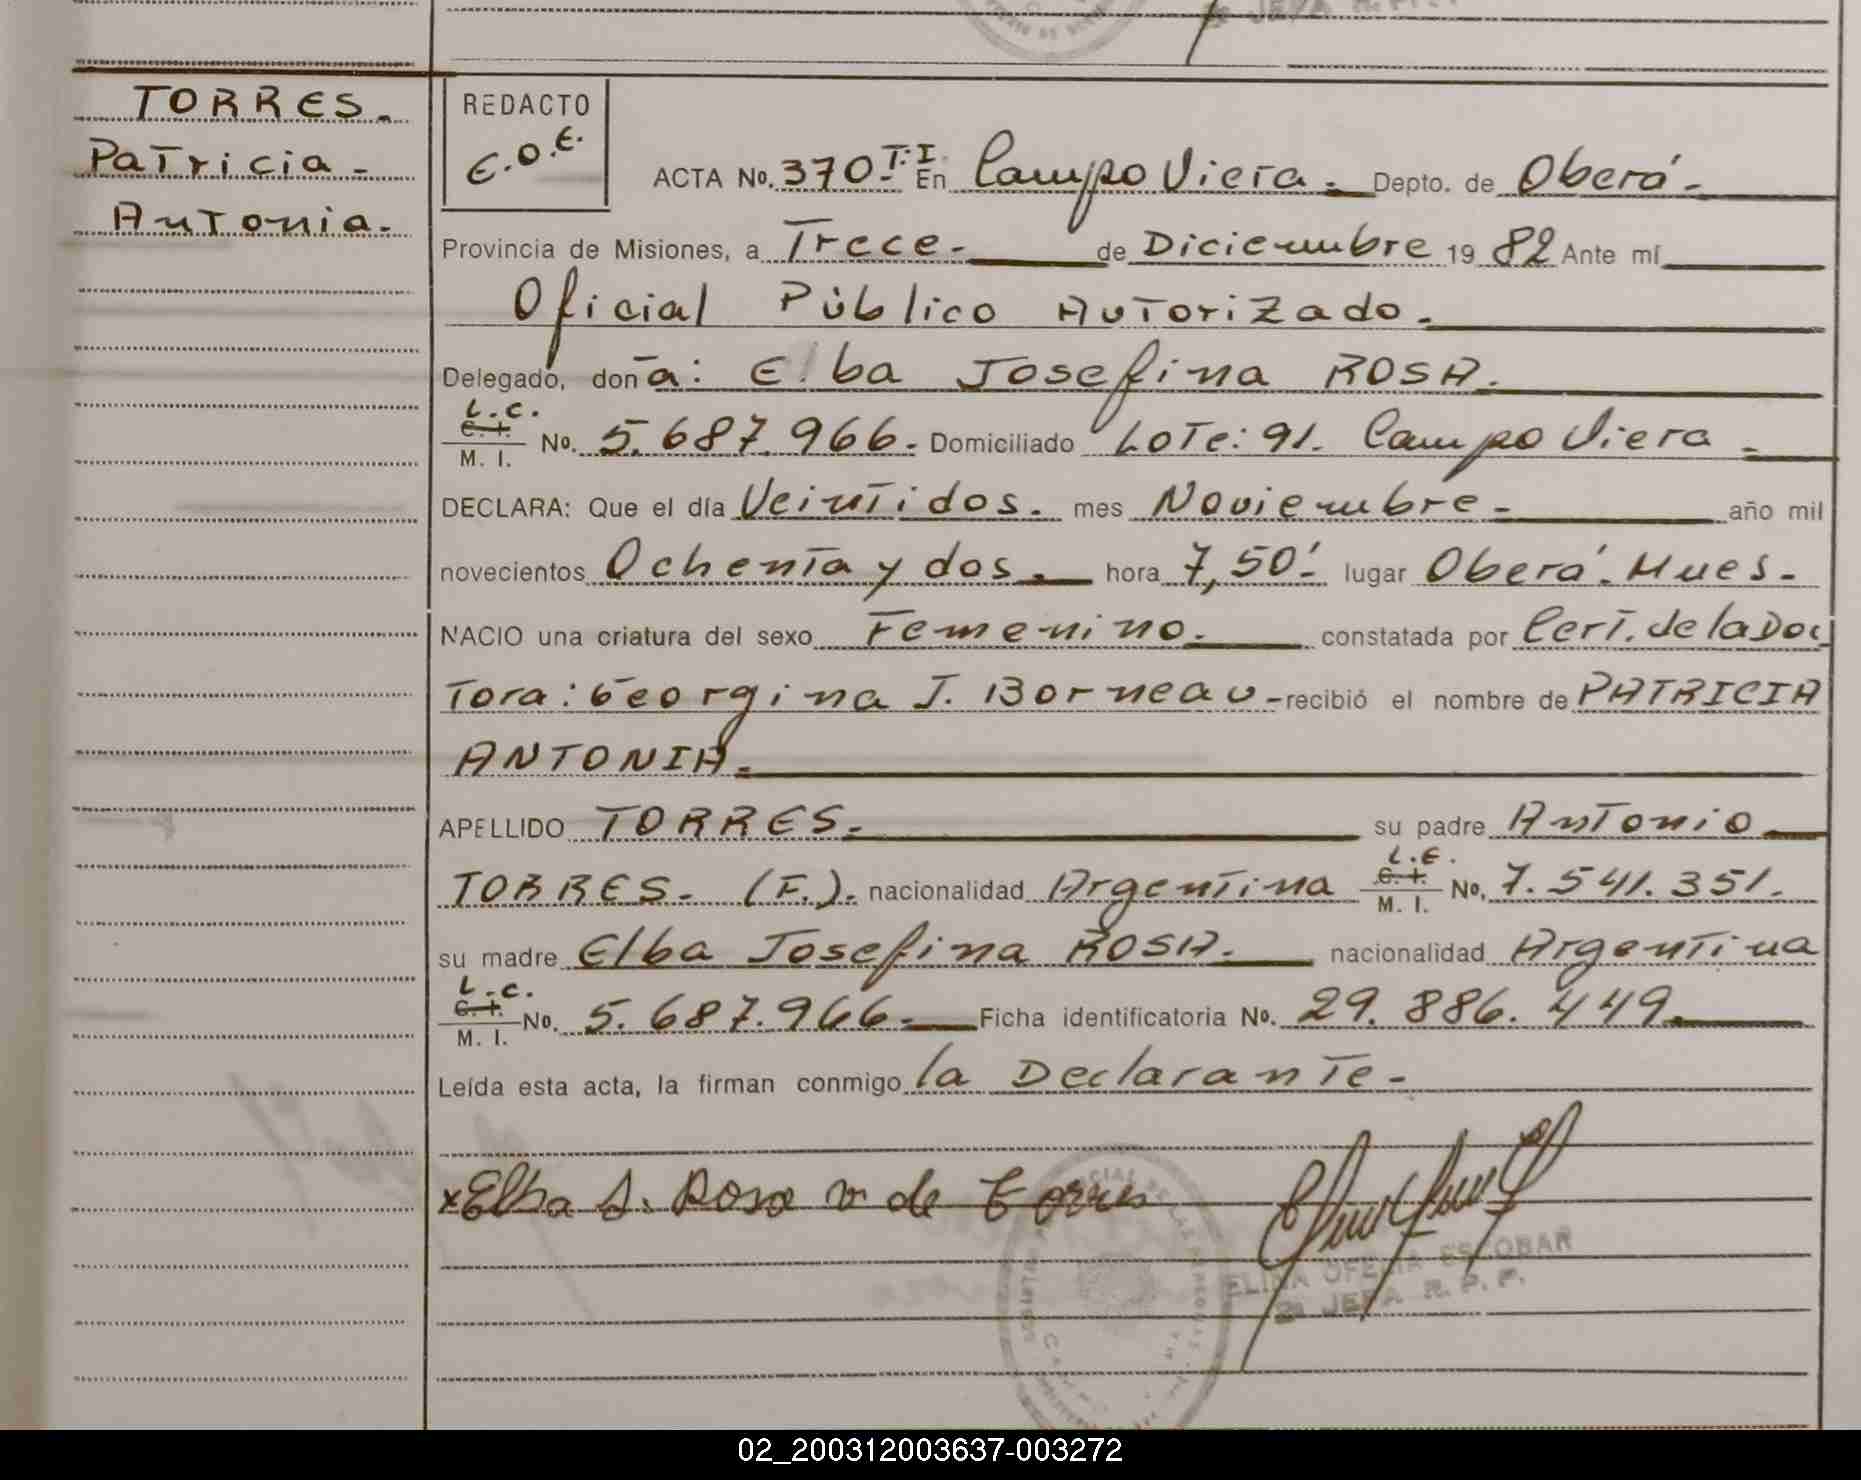 2a JEFA R.P.P.
TORRES.
Patricia -
Antonia.
REDACTO
E.O.E.
ACTA No. 370 - T.I. En Campo Viera. - Depto. de Oberá -
Provincia de Misiones, a Trece. - de Diciembre 19 82 Ante mí
Oficial Público Autorizado. -
Delegado, doña: Elba Josefina ROSA.
L.C.
C. I.
M. I. No. 5.687.966. Domiciliado Lote: 91. Campo Viera -
DECLARA: Que el día Veintidos. mes Noviembre - año mil
novecientos Ochenta y dos. - hora 7,50'. lugar Oberá. Mnes. -
NACIO una criatura del sexo Femenino. constatada por Cert. de la Doc
tora: Georgina J. Borneau - recibió el nombre de PATRICIA
ANTONIA. -
APELLIDO TORRES. - su padre Antonio
TORRES. (F.). nacionalidad Argentina L.E. C. I. M. I. No. 7.541.351.
su madre Elba Josefina ROSA. nacionalidad Argentina
L.C.
C. I.
M. I. No. 5.687.966. Ficha identificatoria No. 29.886.449.
Leída esta acta, la firman conmigo la Declarante -
x Elba J. Rosa v de Torres
ELINA OFELIA ESCOBAR
2a JEFA R.P.P.
02_200312003637-003272